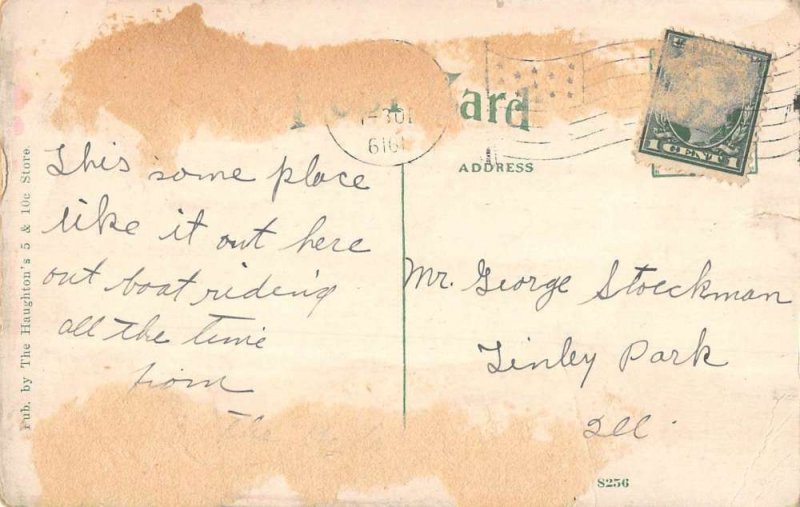 Post Card
ADDRESS
1 CENT 1
This some place
like it out here
out boat riding
all the time
from
The
Mr. George Stoeckman
Tinley Park
Ill.
S256
Pub. by The Haughton's 5 & 10c Store.